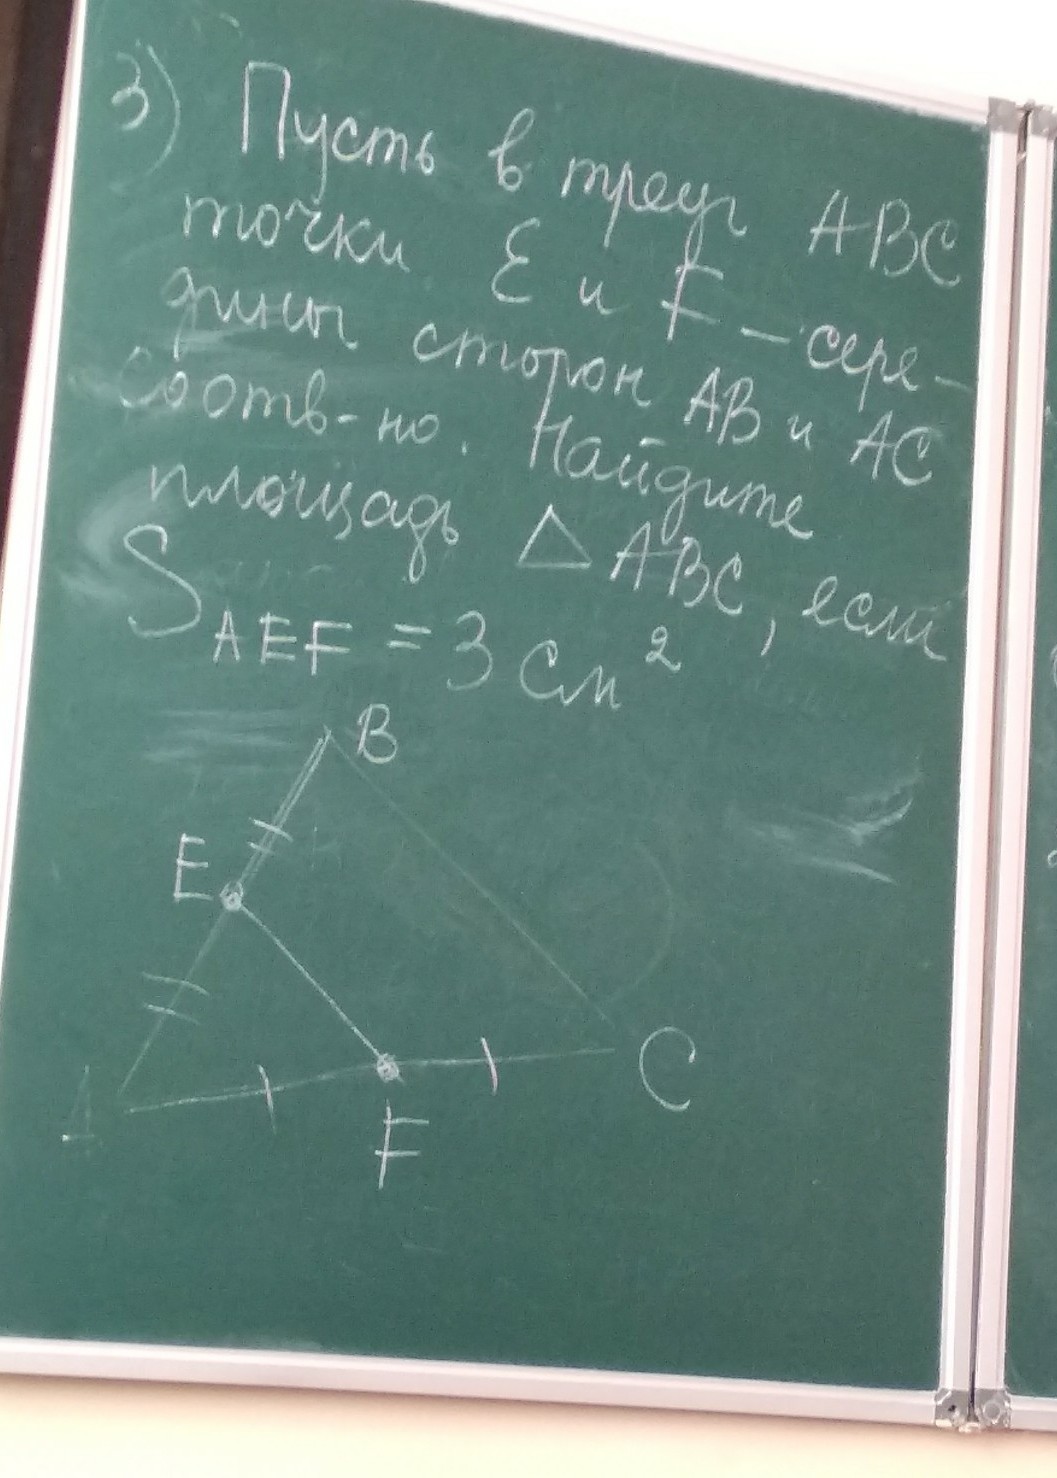 3) Пусть в треуг ABC
точки E и F – сере-
дины сторон AB и AC
соотв-но. Найдите
площадь △ ABC, если
S AEF = 3 см²
B
E
A
F
C